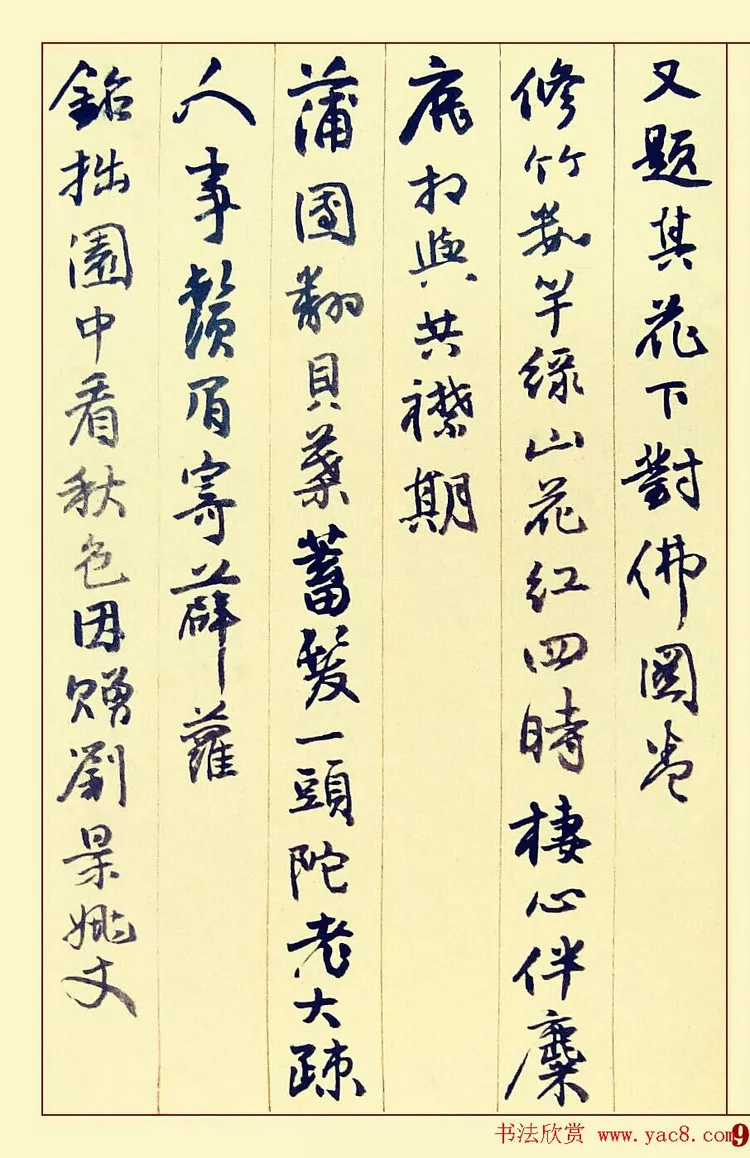 又題其花下對佛圖卷
修竹數竿綠山花紅四時棲心伴麋
鹿相與共襟期
蒲團翻貝葉蓄髮一頭陀老大疎
人事鬚眉寄薜蘿
鉛拙園中看秋色因贈劉景姚丈
书法欣赏 www.yac8.com 9